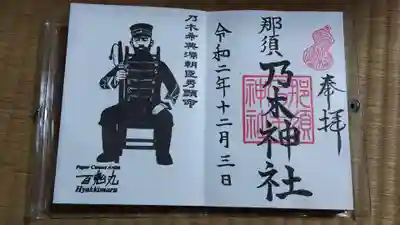 奉拝
那須
乃木神社
那須
神社
令和二年十二月三日
乃木希典源朝臣男爵命
Paper Cutout Artist
百鬼丸
Hyakkimaru